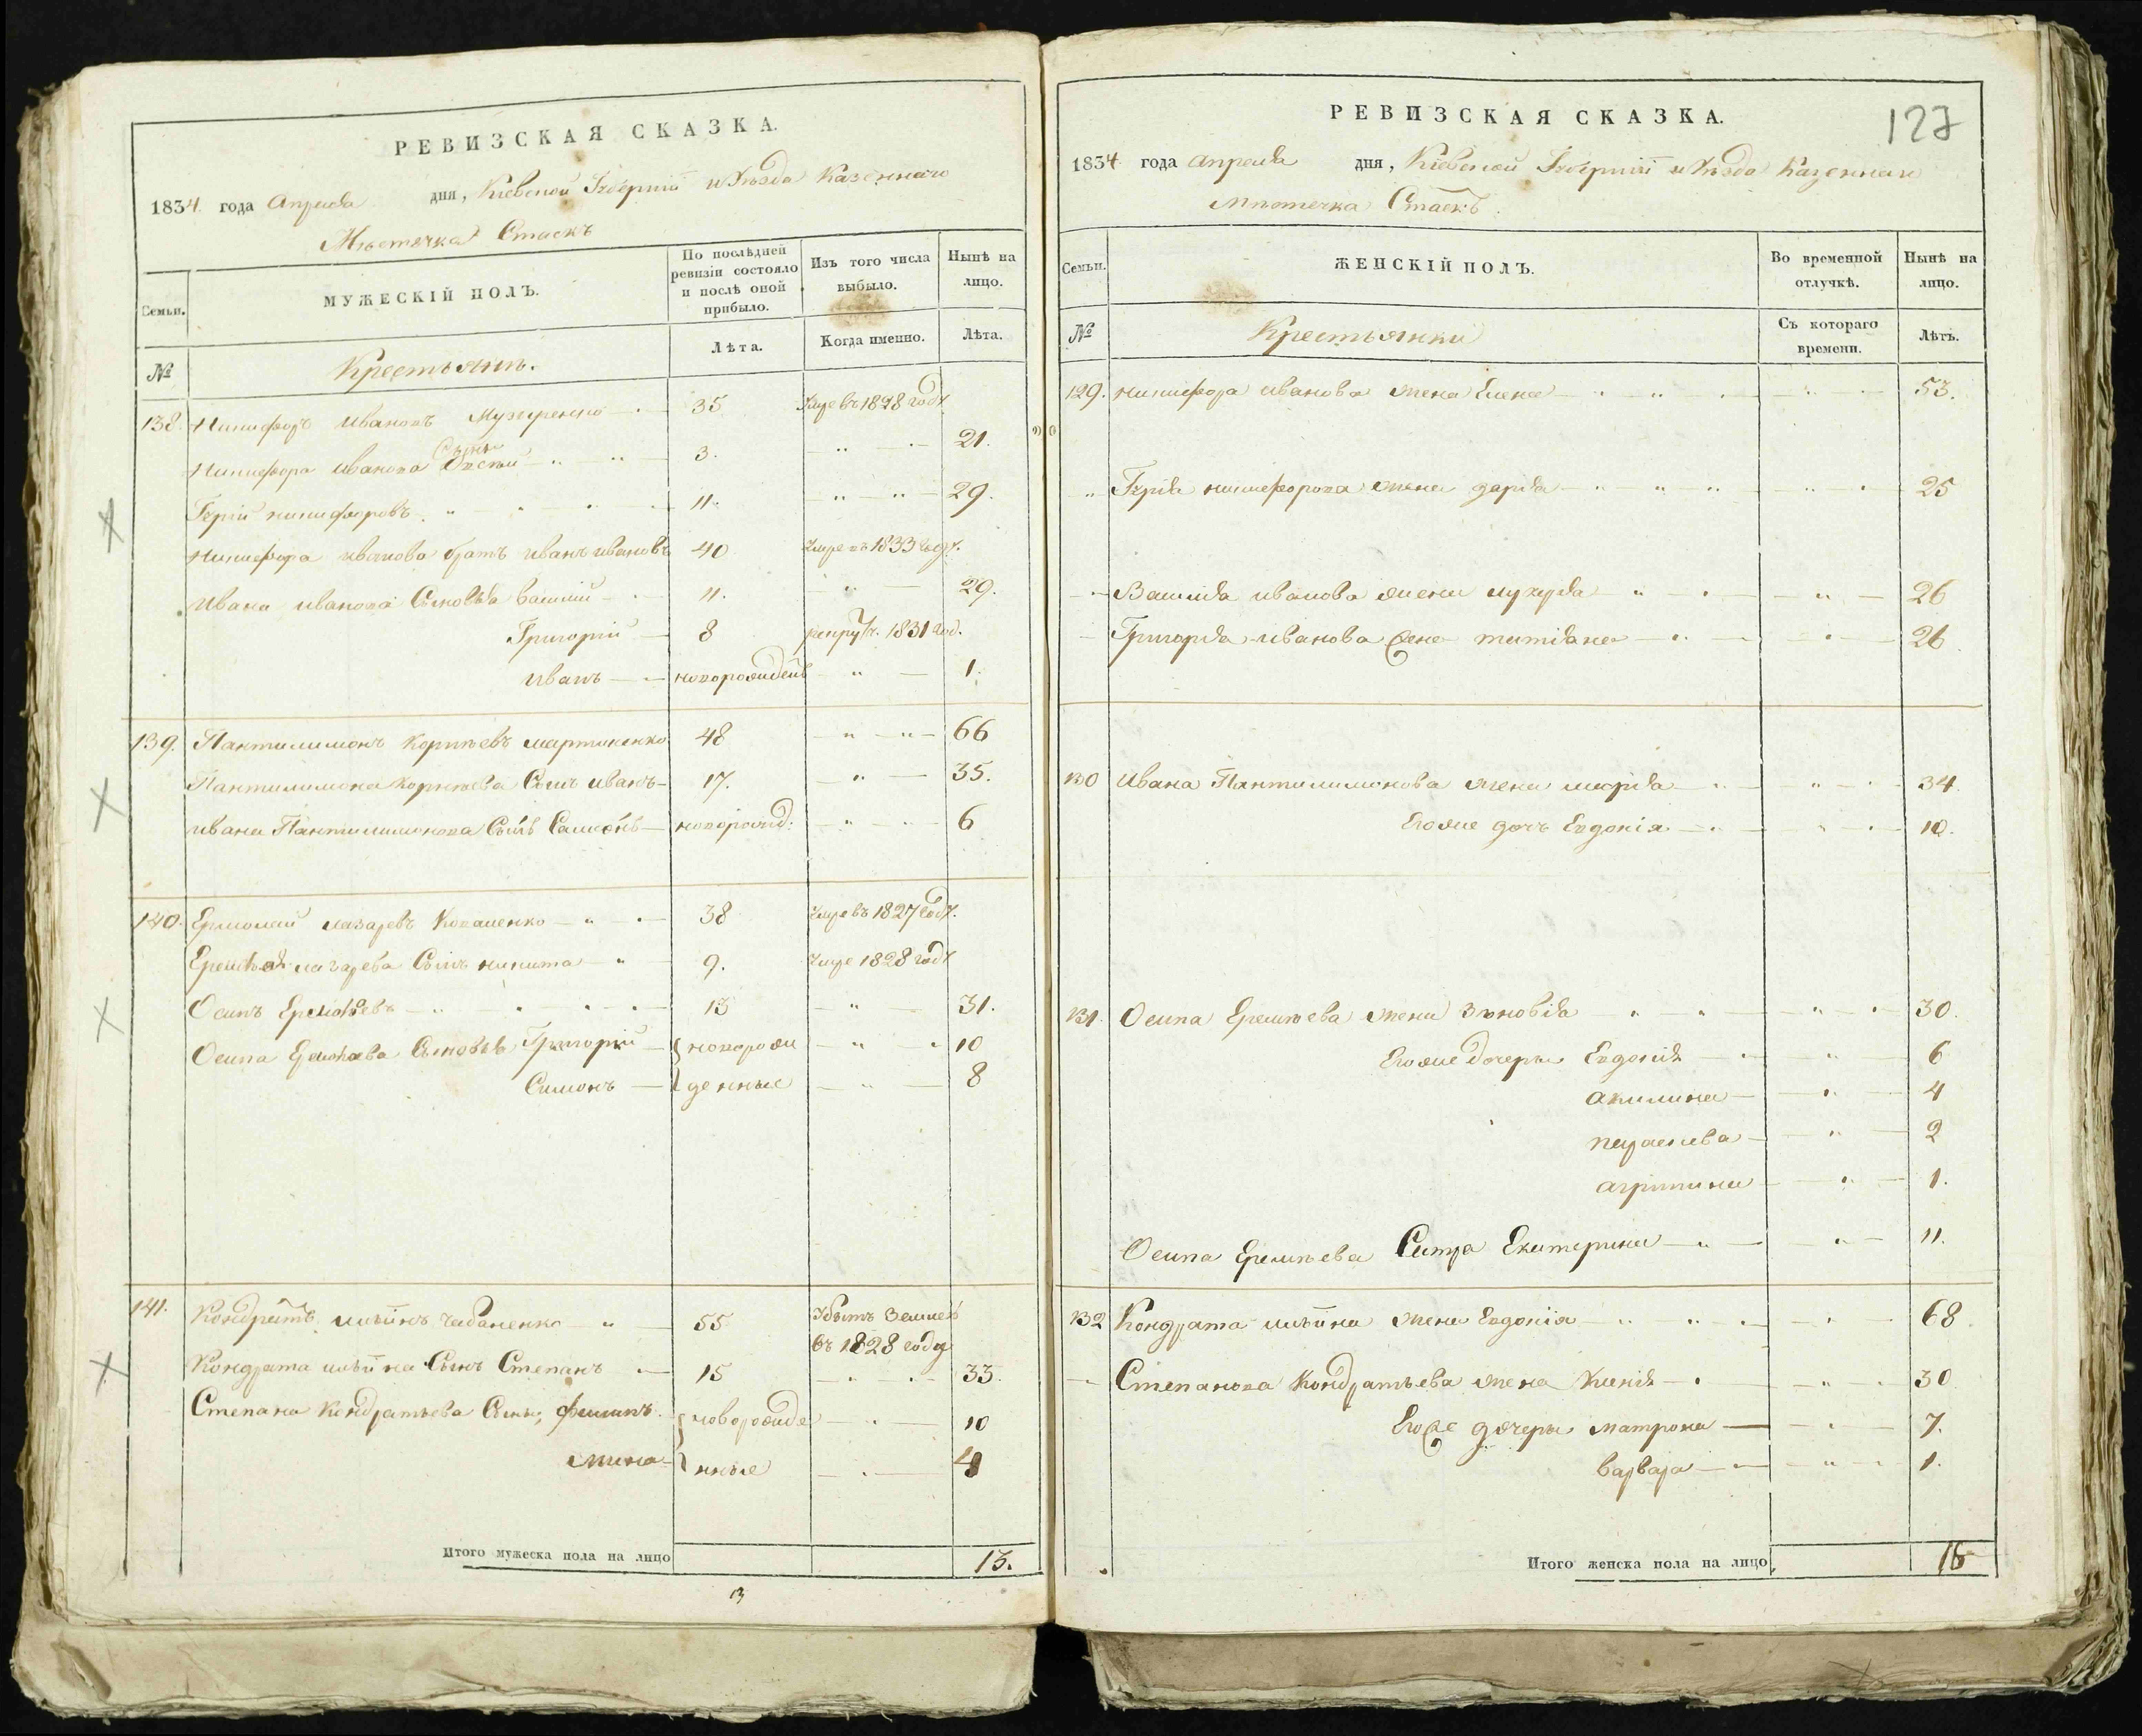 РЕВИЗСКАЯ СКАЗКА.
1834 года Апреля дня, Кіевской Губерніи и Уѣзда Казеннаго
Мѣстечка Стаекъ
Семьи.
МУЖЕСКІЙ ПОЛЪ.
По послѣдней ревизіи состояло и послѣ оной прибыло.
Изъ того числа выбыло.
Нынѣ на лицо.
№
Крестьянѣ.
Лѣта.
Когда именно.
Лѣта.
138. Никифоръ Ивановъ 35 Умре въ 1828 году
Никифора Иванова Сынъ 3. 21.
Гурій Никифоровъ 11. 29.
Никифора Иванова братъ Иванъ Ивановъ 40 Умре въ 1833 году.
Ивана Иванова Сыновья Василій 11. 29.
Григорій 8 рекрут. 1831 год.
Иванъ новорожденъ 1.
139. Пантилимонъ Корнѣевъ Мартыненко 48 66
Пантилимона Корнѣева Сынъ Иванъ 17. 35.
Ивана Пантилимонова Сынъ Самсонъ новорожд: 6
140. Ермолай Лазаревъ Коваленко 38 Умре въ 1827 году.
Лазарева Сынъ Никита 9. Умре 1828 году
Осипъ 13 31.
Осипа Сыновья Григорій новорож 10
Симонъ денные 8
141. Кондратъ Ильинъ Чабаненко 55 въ 1828 году
Кондрата Ильина Сынъ Степанъ 15 33.
Степана Кондратьева Сыны, Филипъ новорожде 10
Мина нные 4
Итого мужеска пола на лицо 13.
13
127
РЕВИЗСКАЯ СКАЗКА.
1834 года Апреля дня, Кіевской Губерніи и Уѣзда Казеннаго
Мѣстечка Стаекъ.
Семьи.
ЖЕНСКІЙ ПОЛЪ.
Во временной отлучкѣ.
Нынѣ на лицо.
№
Крестьянки
Съ котораго времени.
Лѣтъ.
129. Никифора Иванова жена Елена 53.
Гурія Никифорова жена Дарія 25
Василія Иванова жена Лукерія 26
Григорія Иванова жена Татіана 26
130 Ивана Пантилимонова жена Марія 34
Егоже дочь Евдокія 10.
131. Осипа Еремѣева жена Зѣновія 30.
Егоже дочеры Евдокія 6
Акилина 4
Параскева 2
Агрипина 1.
Осипа Еремѣева Сестра Екатерина 11.
132 Кондрата Ильина жена Евдокія 68
Степанова Кондратьева жена Ксенія 30
Егоже дочеры Матрона 7.
Варвара 1.
Итого женска пола на лицо 16